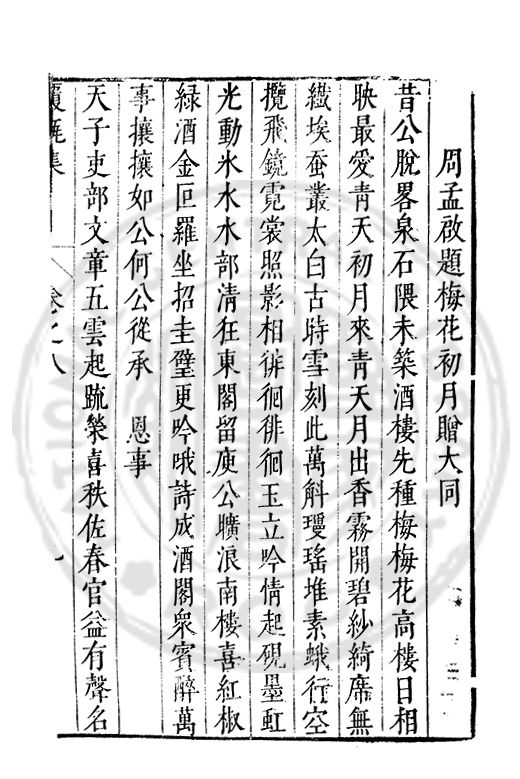 周孟啟題梅花初月贈大同
昔公脫畧泉石隈未築酒樓先種梅梅花高樓日相
映最愛青天初月來青天月出香霧開碧紗綺席無
纖埃蚕叢太白古時雪刻此萬斛瓊瑤堆素蛾行空
攬飛鏡霓裳照影相徘徊徘徊玉立吟情起硯墨虹
光動氷水水部清狂東閣留庾公曠浪南樓喜紅椒
綠酒金叵羅坐招圭璧更吟哦詩成酒闌衆賓醉萬
事攘攘如公何公從承　恩事
天子吏部文章五雲起䟽榮喜秩佐春官益有聲名
覆瓿集　卷之八　九